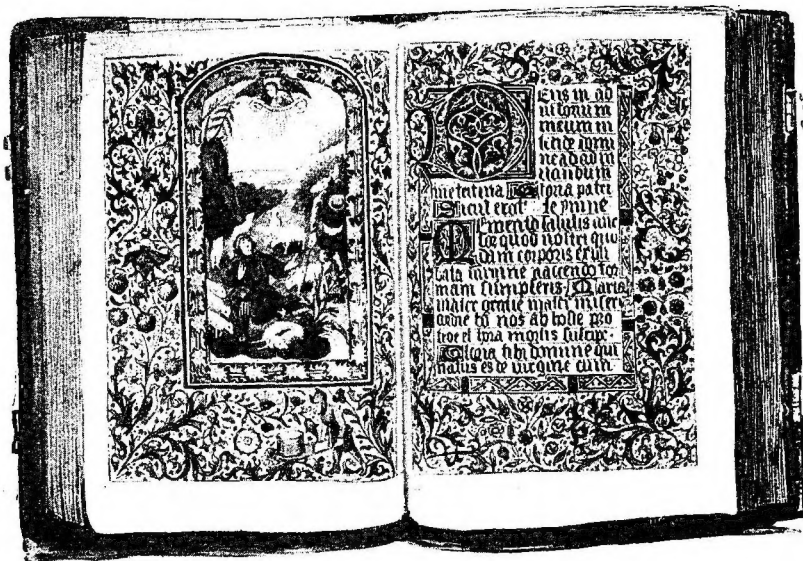 DEus in ad
iutorium
meum in
tende domi
ne ad adiu
uandum
me festina Gloria patri
Sicut erat
Memento salutis auc
tor quod nostri quo
dam corporis ex illi
bata virgine nascendo for
mam sumpseris Maria
mater gratie mater miseri
cordie tu nos ab hoste pro
tege et hora mortis suscipe.
Gloria tibi domine qui
natus es de virgine cum